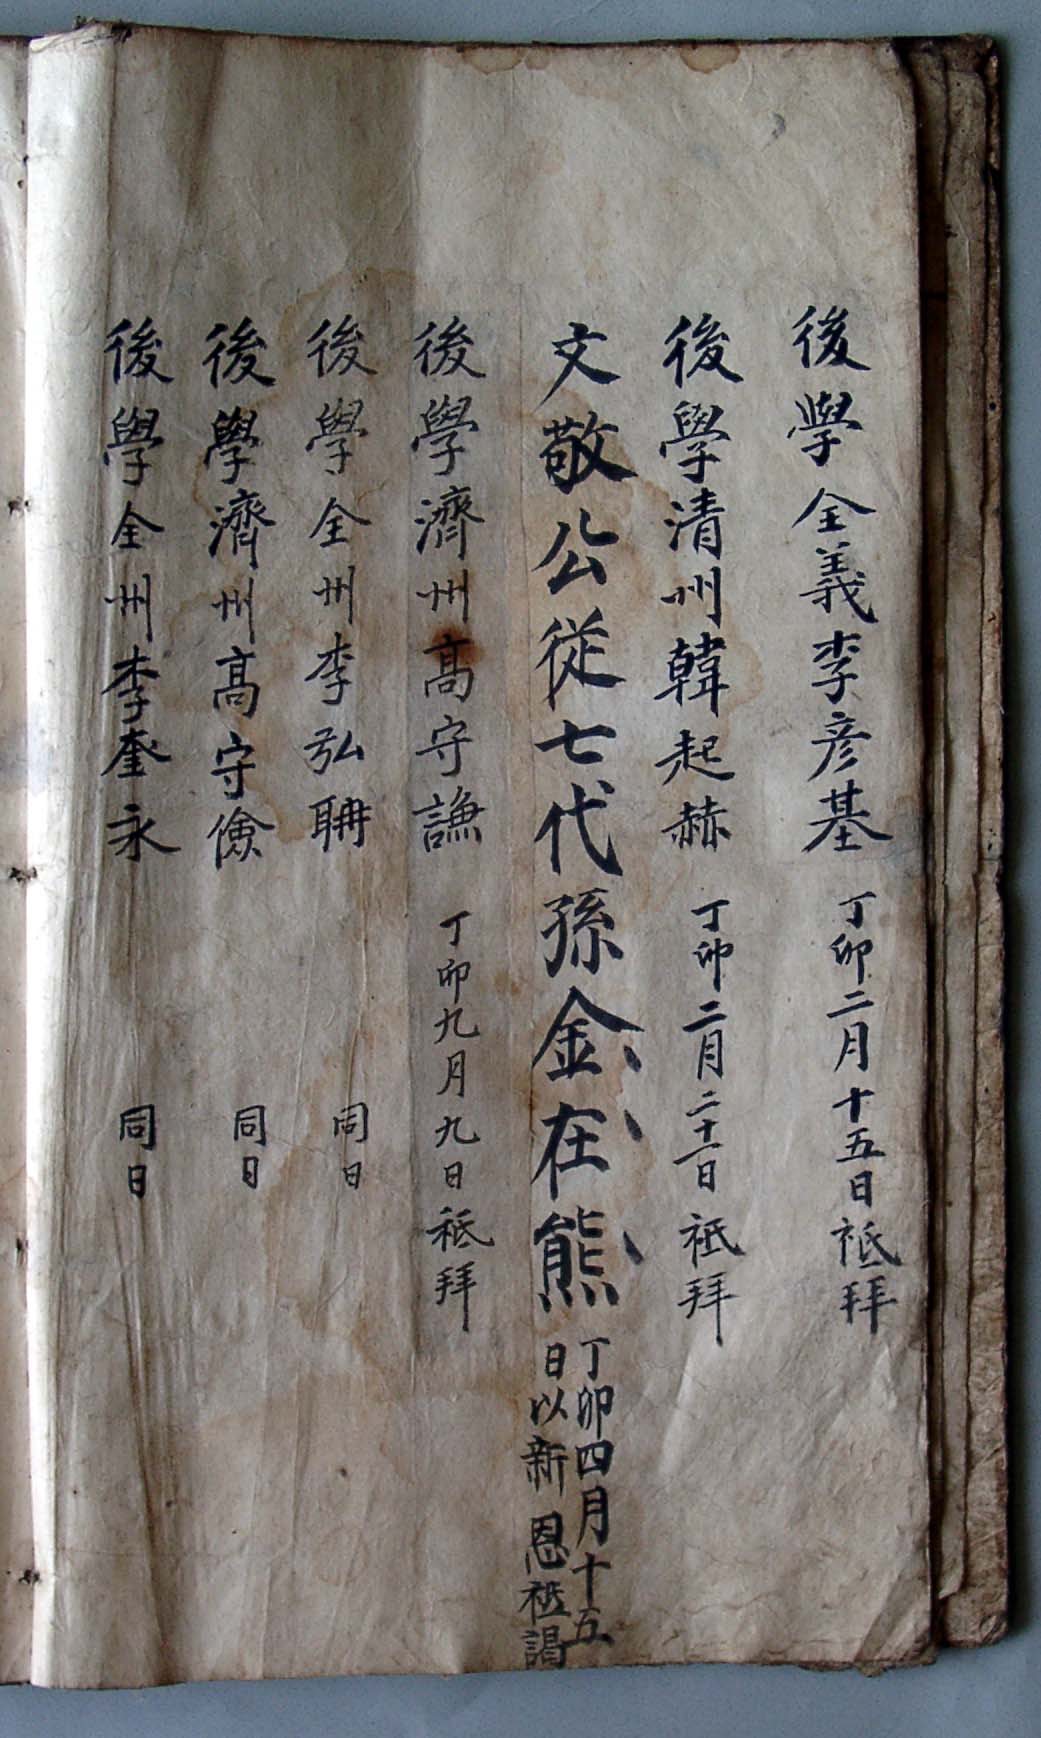 後學全義李彦基 丁卯二月十五日祗拜
後學清州韓起赫 丁卯二月二十一日祗拜
文敬公從七代孫金在熊 丁卯四月十五
日以新 恩祗謁
後學濟州高守謙 丁卯九月九日祗拜
後學全州李弘聃 同日
後學濟州高守儉 同日
後學全州李奎永 同日